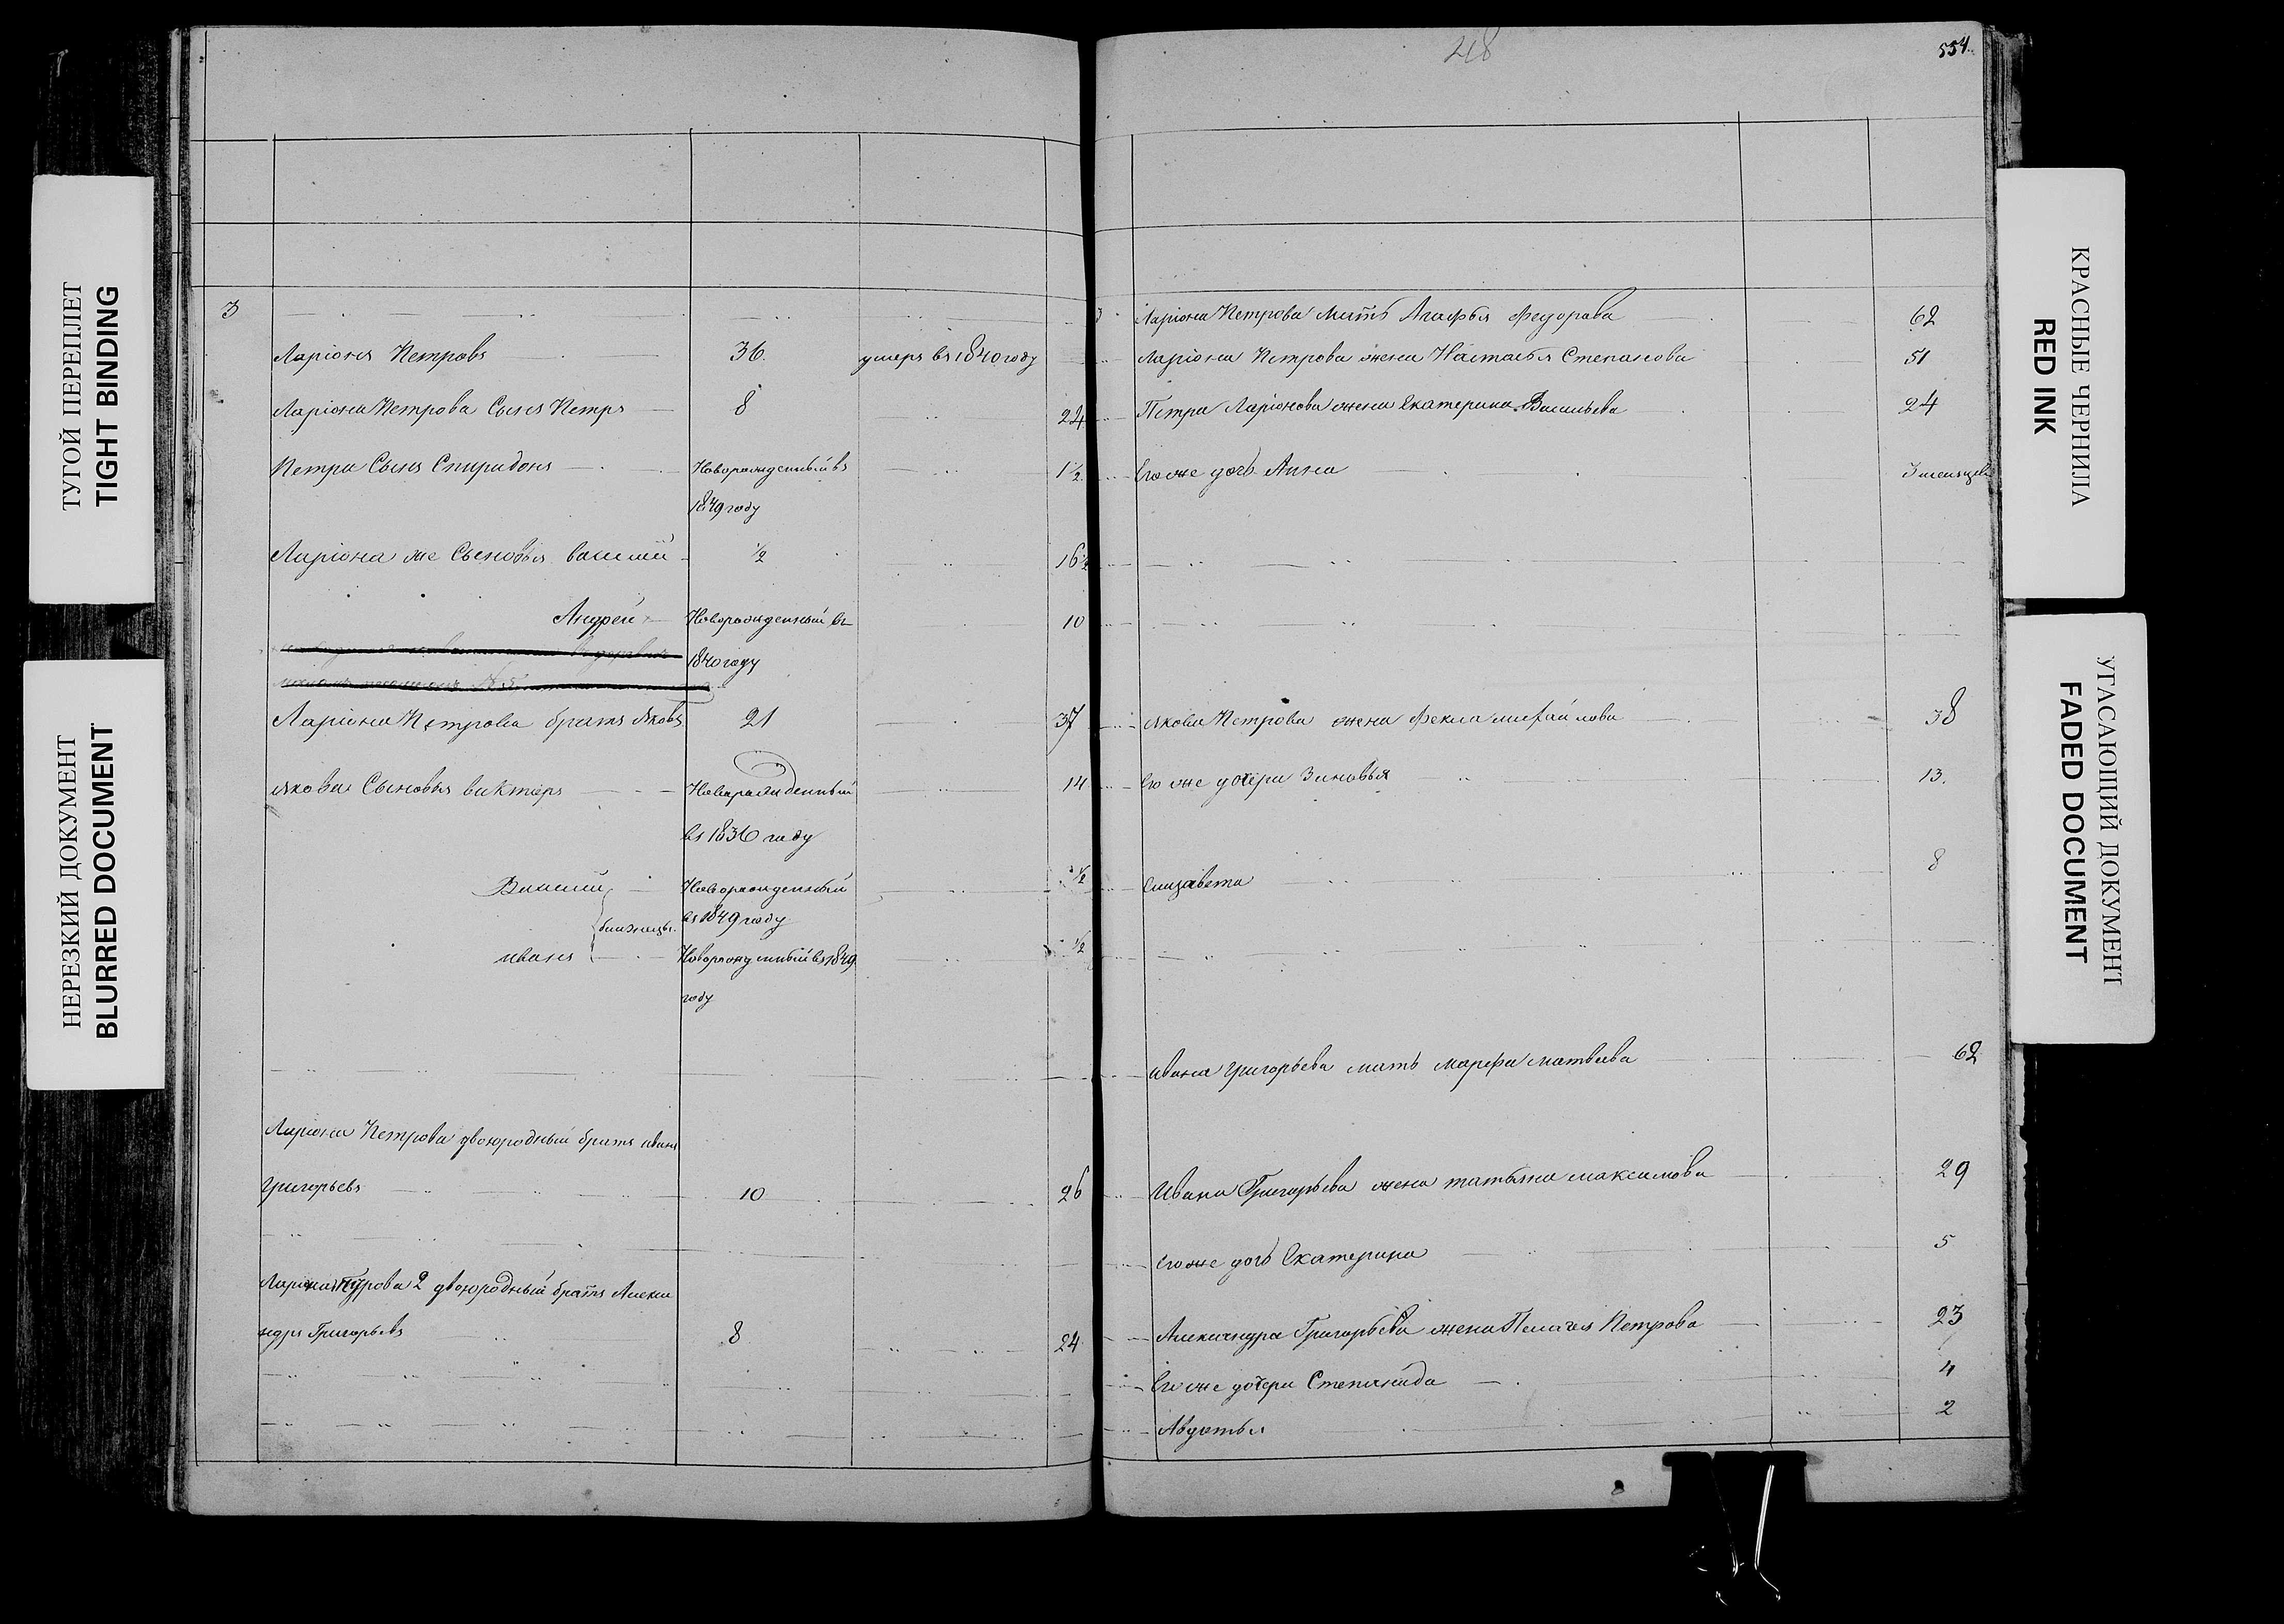 ТУГОЙ ПЕРЕПЛЕТ
TIGHT BINDING
НЕРЕЗКИЙ ДОКУМЕНТ
BLURRED DOCUMENT
3
Ларіонъ Петровъ 36. умеръ въ 1840 году
Ларіона Петрова Сынъ Петръ 8 24
Петра Сынъ Спиридонъ Новорожденный въ 1 1/2
1849 году
Ларіона же Сыновья Василий 1/2 16 1/2
Андрей Новорожденный въ 10
1840 году
Ларіона Петрова братъ Яковъ 21 37
Якова Сыновья Викторъ Новорожденный 14
въ 1836 году
Василий Новорожденный 1/2
близнецы. въ 1849 году
Иванъ Новорожденный въ 1849 1/2
году
Ларіона Петрова двоюродный братъ Иванъ
Григорьевъ 10 26
Ларіона Петрова 2 двоюродный братъ Алекса
ндръ Григорьевъ 8 24
218
554.
3 Ларіона Петрова Мать Агафья Федорова 62
Ларіона Петрова жена Настасья Степанова 51
Петра Ларіонова жена Екатерина Васильева 24
Его же дочь Анна 3 месяцев
Якова Петрова жена Фекла Михайлова 38
Его же дочери Зиновья 13.
Елизавета 8
Ивана Григорьева мать Марфа Матвеева 62
Ивана Григорьева жена Татьяна Максимова 29
Его же дочь Екатерина 5
Александра Григорьева жена Пелагея Петрова 23
Его же дочери Степанида 4
Авдотья 2
КРАСНЫЕ ЧЕРНИЛА
RED INK
УГАСАЮЩИЙ ДОКУМЕНТ
FADED DOCUMENT